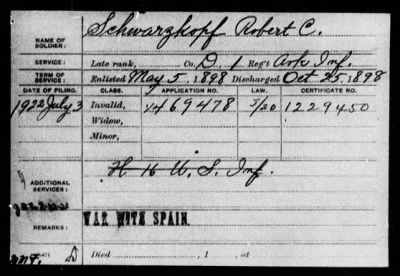 NAME OF SOLDIER: Schwarzkopf Robert C.
SERVICE: Late rank, Co. D, 1 Reg't Ark Inf.
TERM OF SERVICE: Enlisted May 5, 1898 Discharged Oct 25, 1898
DATE OF FILING. CLASS. APPLICATION NO. LAW. CERTIFICATE NO.
1922 July 3 Invalid, 1469478 5/20 1229450
Widow,
Minor,
ADDITIONAL SERVICES: H K U.S. Inf.
WAR WITH SPAIN.
Died , 1 , at